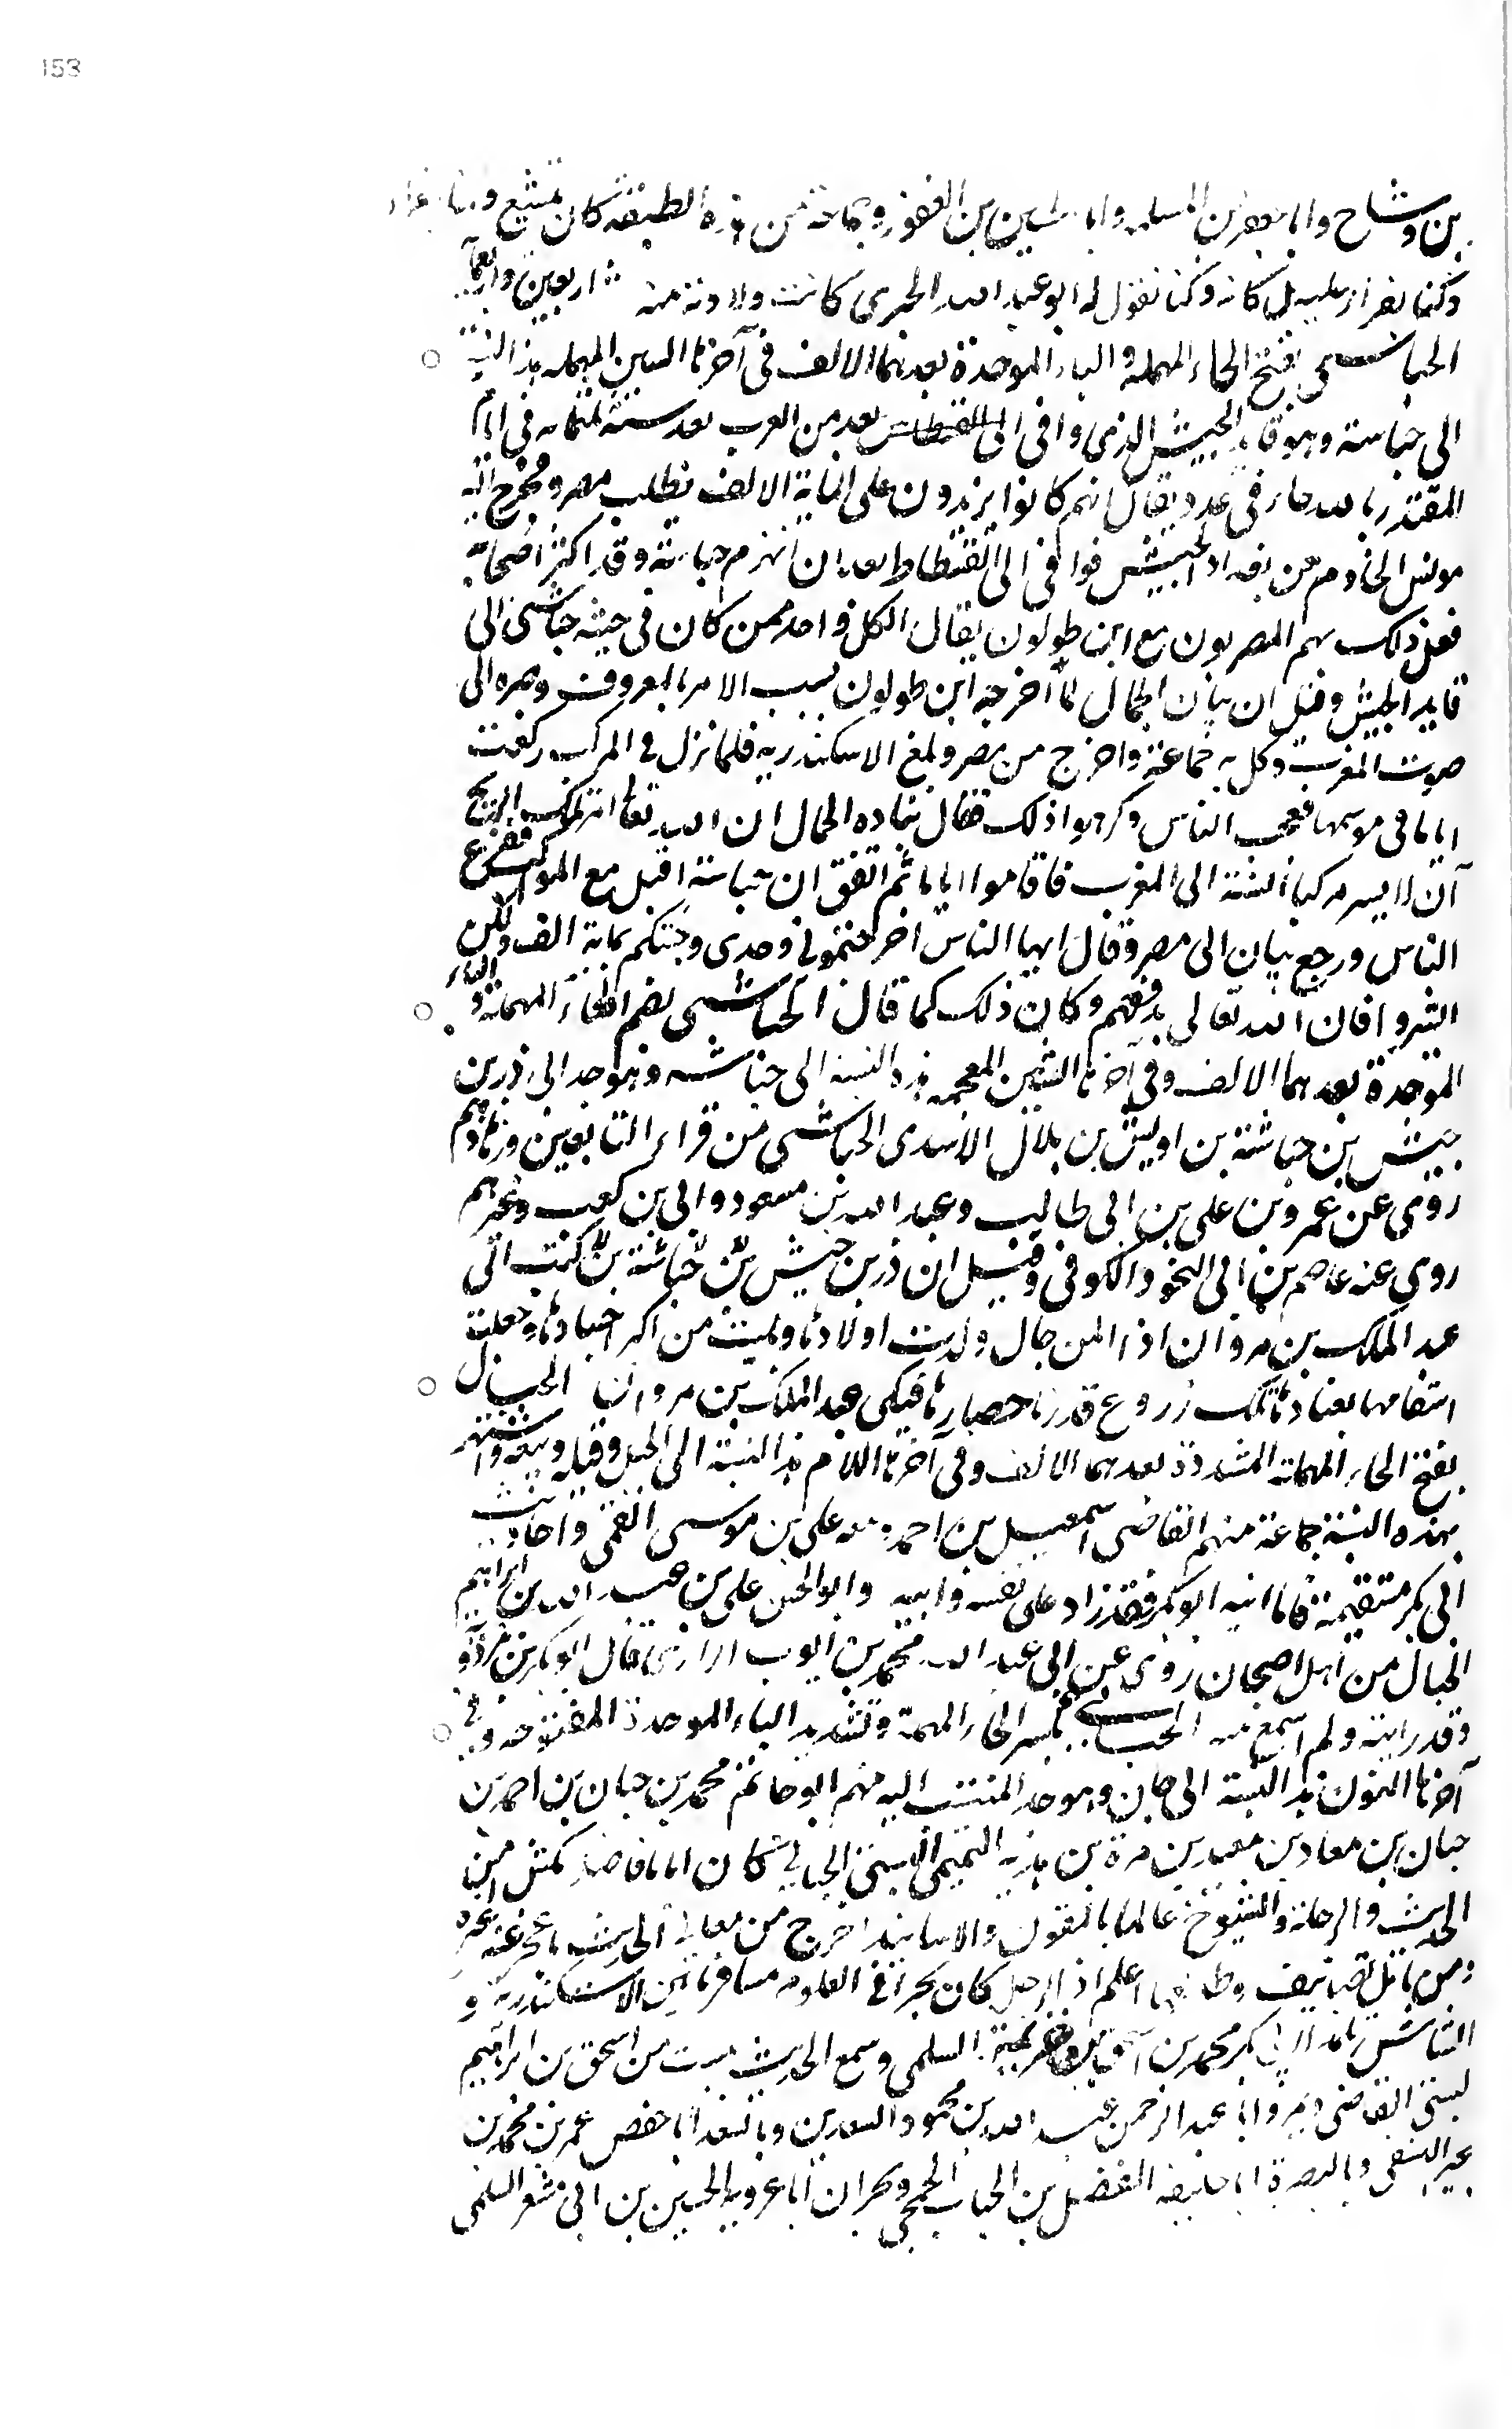 153
بن وشاح وابا جعفر بن المسلمه وابا الحسين بن الغفور وجماعة من هذه الطبقة كان تشيع
وكنا نقرأ عليه كانه وكنا نقول له ابو عبد الله الحبرى كانت ولادته سنة اربعين واربعمائة
الحباسى بفتح الحاء المهملة والباء الموحدة بعدهما الالف فى آخرها السين المهمله هذه النسبة
الى حباسة وهو قايد الجيش الذى وافى الى الفسطاس بعد من العرب بعد سنة ثلثمائه فى ايام
المقتدر بالله جاء فى عدد يقال انهم كانوا يزيدون على المائة الالف يطلب مصر وخرج اليه
مونس الخادم من بغداد الجيش فوافى الى الفسطاط بعد ان انهزم حباسته وقد اكثر اصحابه
فعل ذلك بهم المصريون مع ابن طولون يقال لكل واحد ممن كان فى جيشه حباسى الى
قايد الجيش وقيل ان بنان الحمال لما اخرجه ابن طولون بسبب الامر بالمعروف وسيره الى
صوب المغرب وكل به جماعة واخرج من مصر وبلغ الاسكندرية فلما نزل فى المركب ركفت
اياما فى موسمها فعجب الناس وكرهوا ذلك فقال بنان الحمال ان الله تعالى امر تلك الريح
ان لا يسير مركبا السنة الى المغرب فاقاموا اياما ثم اتفق ان حباسة اقبل مع المواكب ففزع
الناس ورجع بنان الى مصر وقال ايها الناس اخرجتمونى وحدى وجئتكم بماية الف ولكن
ابشروا فان الله تعالى يدفعهم وكان ذلك كما قال الحباشى بضم الحاء المهملة والباء
الموحدة بعدهما الالف وفى آخرها الشين المعجمه هذه النسبة الى حباشه وهو جد الى زر بن
حبيش بن حباشة بن اوس بن بلال الاسدى الحباشى من قراء التابعين وزهادهم
روى عن عمر وبن على بن ابى طالب وعبد الله بن مسعود وابى بن كعب وغيرهم
روى عنه عاصم بن ابى النجود الكوفى وقيل ان زر بن حبيش بن حباشة بن كتب الى
عبد الملك بن مروان اذا الرجال ولدت اولادها وبليت من كبر اجسادها وجعلت
اسقامها تعتادها تلك زروع قد دنا حصادها فبكى عبد الملك بن مروان الحبال
بفتح الحاء المهملة المشددة بعدهما الالف وفى آخرها اللام هذه النسبة الى الحبل وفتله وبيعه واشتهر
بهذه النسبة جماعة منهم القاضى اسمعيل بن احمد بن على بن موسى القمى واحاديث
ابى بكر مستقيمة فاما ابنه ابو بكر فقد زاد على نفسه وابيه وابو الحسن على بن عبد الله بن ابراهيم
الحبال من اهل اصبهان روى عن ابى عبد الله محمد بن ايوب الرازى قال ابو بكر بن مردويه
وقد رايته ولم اسمع منه الحبانى بكسر الحاء المهملة وتشديد الباء الموحدة المفتوحه وفى
آخرها النون هذه النسبة الى حبان وهو جد المنتسب اليه منهم ابو حاتم محمد بن حبان بن احمد بن
حبان بن معاذ بن معبد بن مرة بن هدبه التميمى البستى الحبانى كان اماما فاضلا مكثرا من
الحديث والرحلة والشيوخ عالما بالمتون والاسانيد اخرج من معانى الحديث ما عجز عنه غيره
ومن تامل تصانيفه وطالعها علم ان الرجل كان بحرا فى العلوم سافر ما بين الاسكندرية و
الشاش تلمذ لابى بكر محمد بن اسحق بن خزيمة السلمى وسمع الحديث ببست من اسحق بن ابراهيم
لبستى القاضى وبمرو ابا عبد الرحمن عبد الله بن محمود السعدى وبالسغد ابا حفص عمر بن محمد بن
بحير السغدى وبالبصرة ابا خليفه الفضل بن الحباب الجمحى وبحران ابا عروبه الحسين بن ابى معشر السلمى